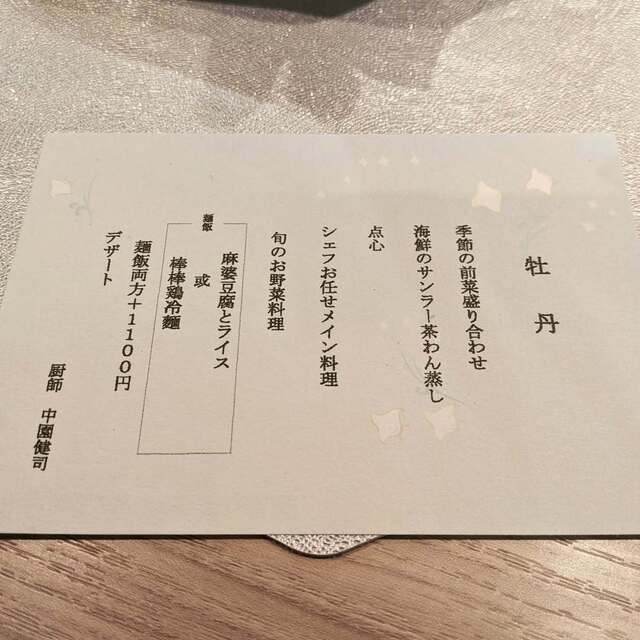 牡丹
季節の前菜盛り合わせ
海鮮のサンラー茶わん蒸し
点心
シェフお任せメイン料理
旬のお野菜料理
麺飯
麻婆豆腐とライス
或
棒棒鶏冷麺
麺飯両方+1100円
デザート
厨師 中園健司